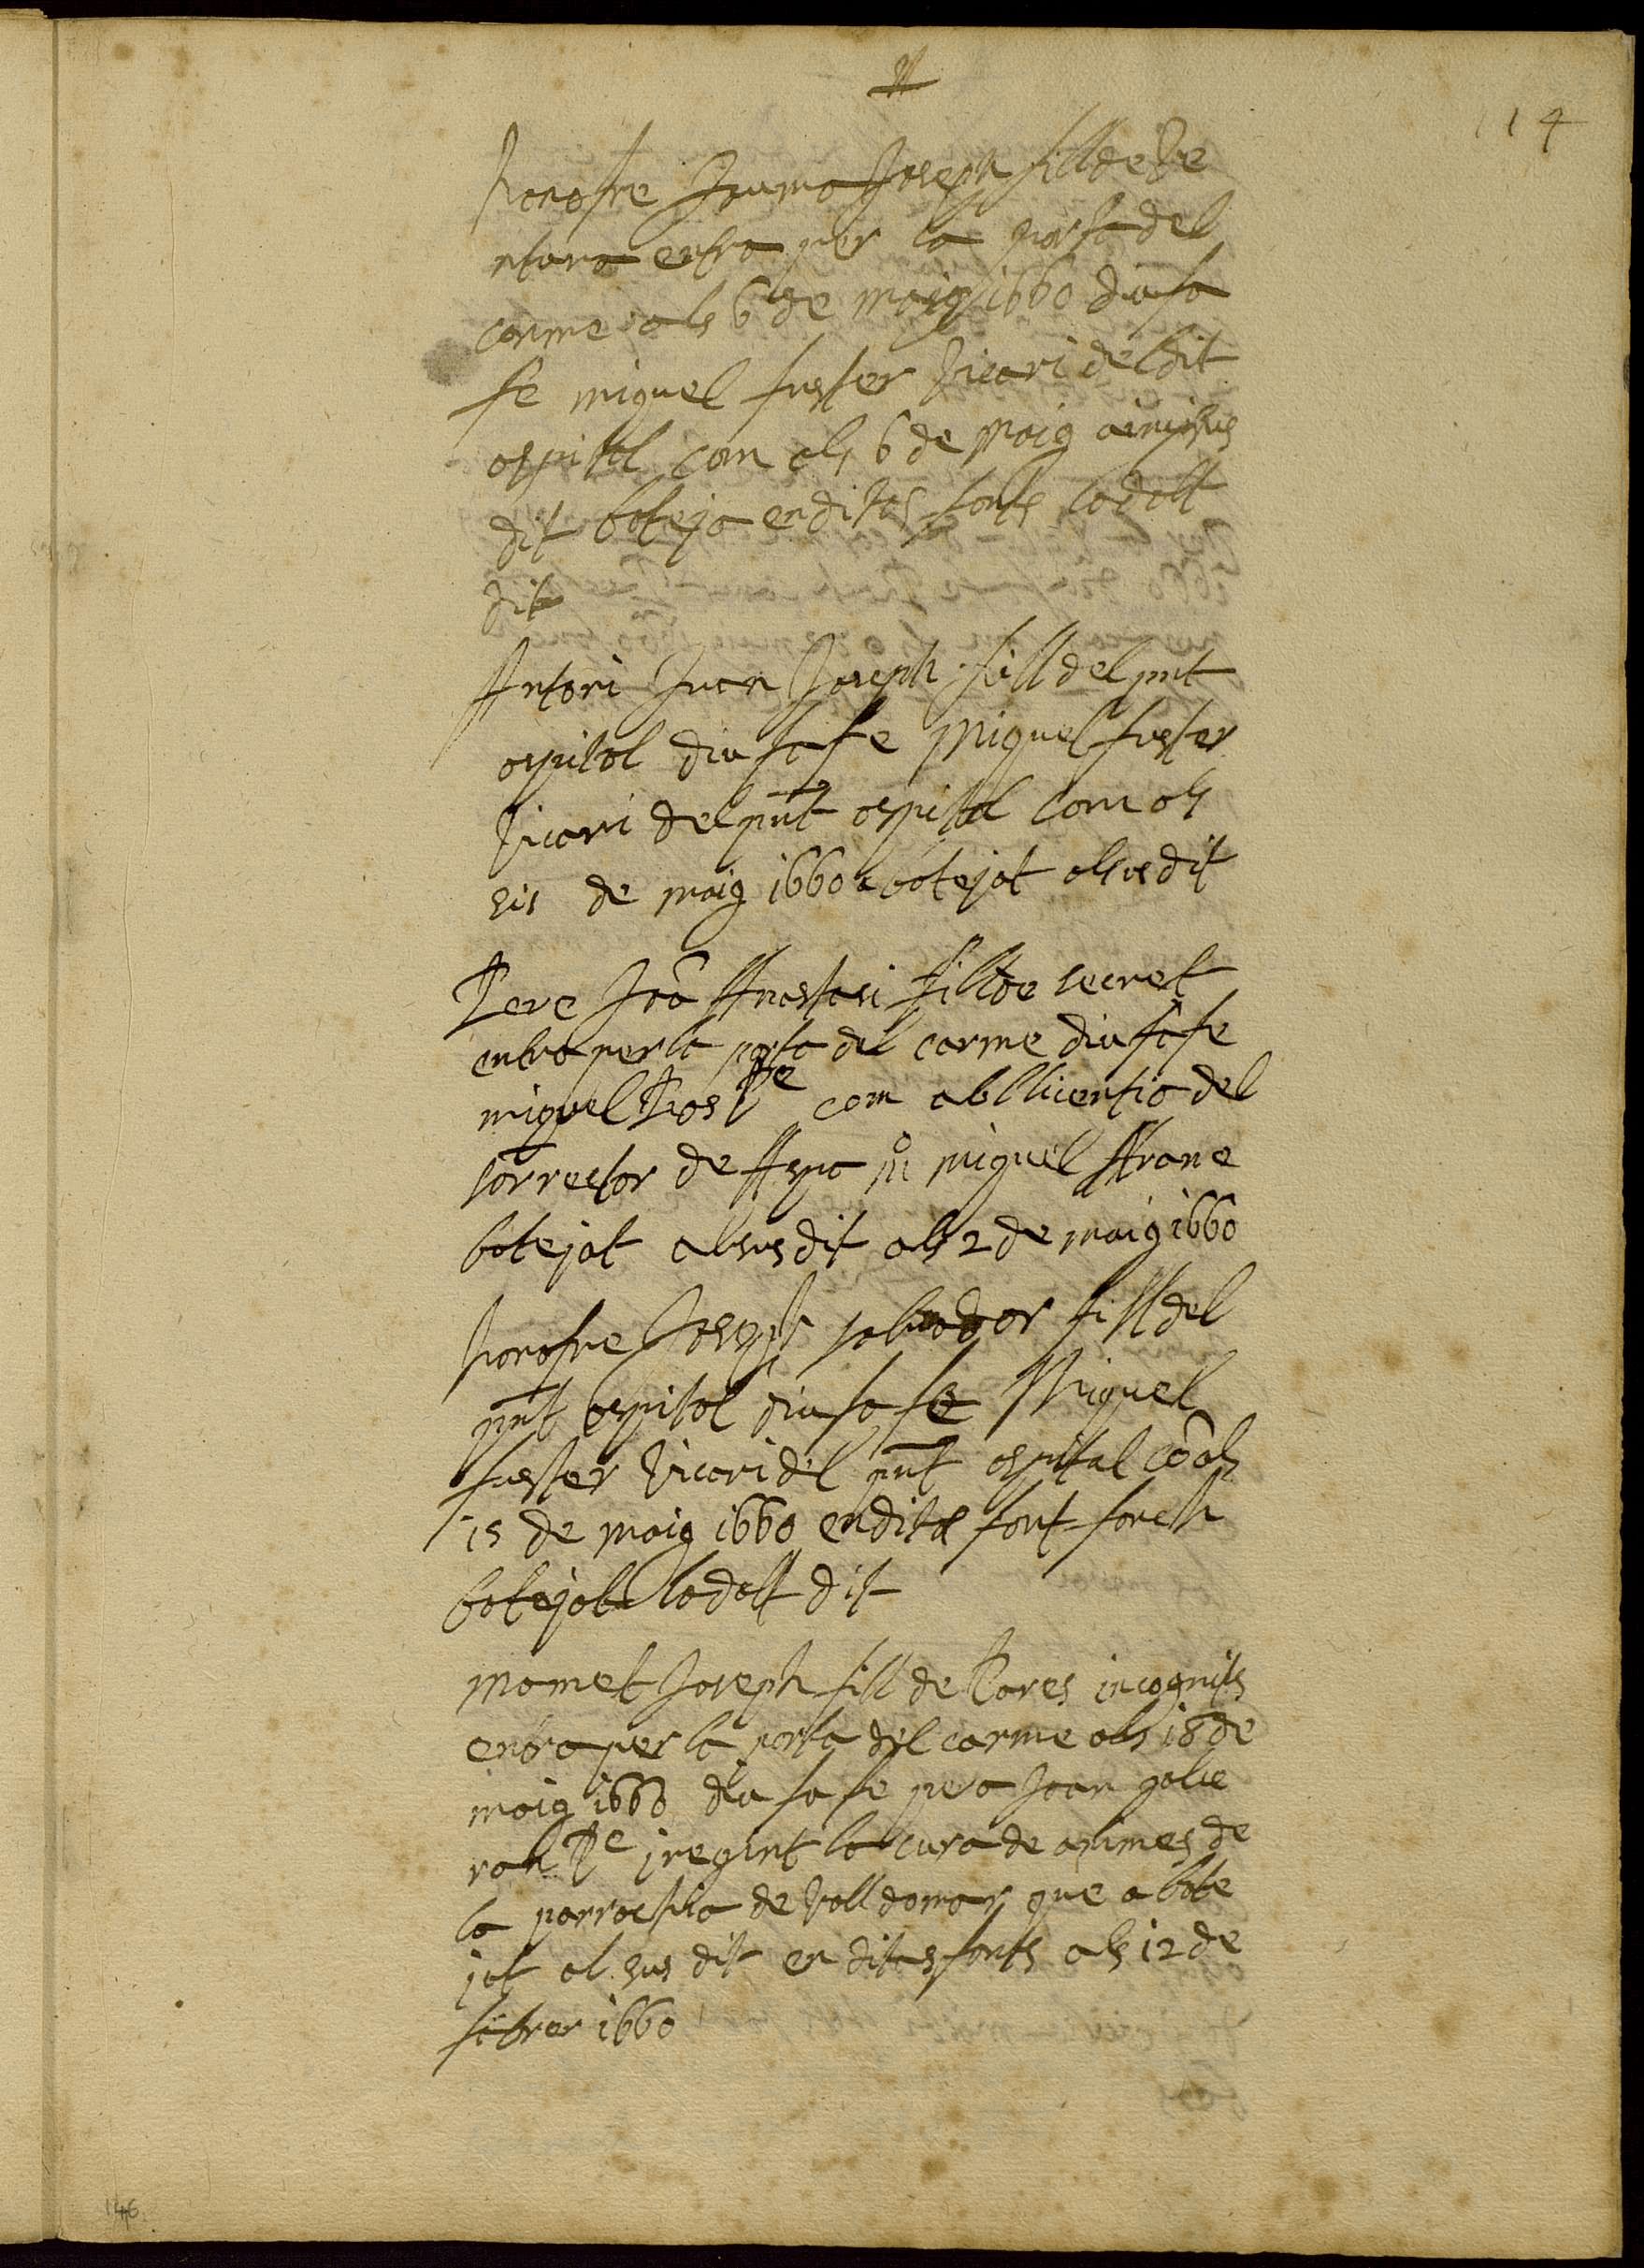 114
honofre Jauma Joseph fill de Ve
ntura entra per la porta del
carme als 6 de maig 1660 diu sa
fe miquel fuster Vicari del dit
ospital com als 6 de Maig
dit bateja en dites fonts lo dall
dit
Antoni Juan Joseph fill del pnt
ospital diu sa fe Miquel fuster
Vicari del pnt ospital com als
sis de maig 1660 a batejat al sus dit
Pere Joã Anastasi fill de secret
entra per la porta del carme diu sa fe
miquel Pre com ab llicentia del
sorrector de Aspa miquel
batejat al sus dit als 2 de maig 1660
honofre Joseph salvador fill del
pnt ospital diu sa fe Miquel
fuster Vicari del pnt ospital cõ als
15 de maig 1660 en dita font fonch
batejat lo dalt dit
mamet Joseph fill de Pares incognits
entra per la porta del carme als 18 de
maig 1660 diu sa fe pera Joan galce
ran Pre y regint la cura de animes de
la parrochia de Valldomar que a bate
jat al sus dit en dites fonts als 12 de
febrer 1660
146